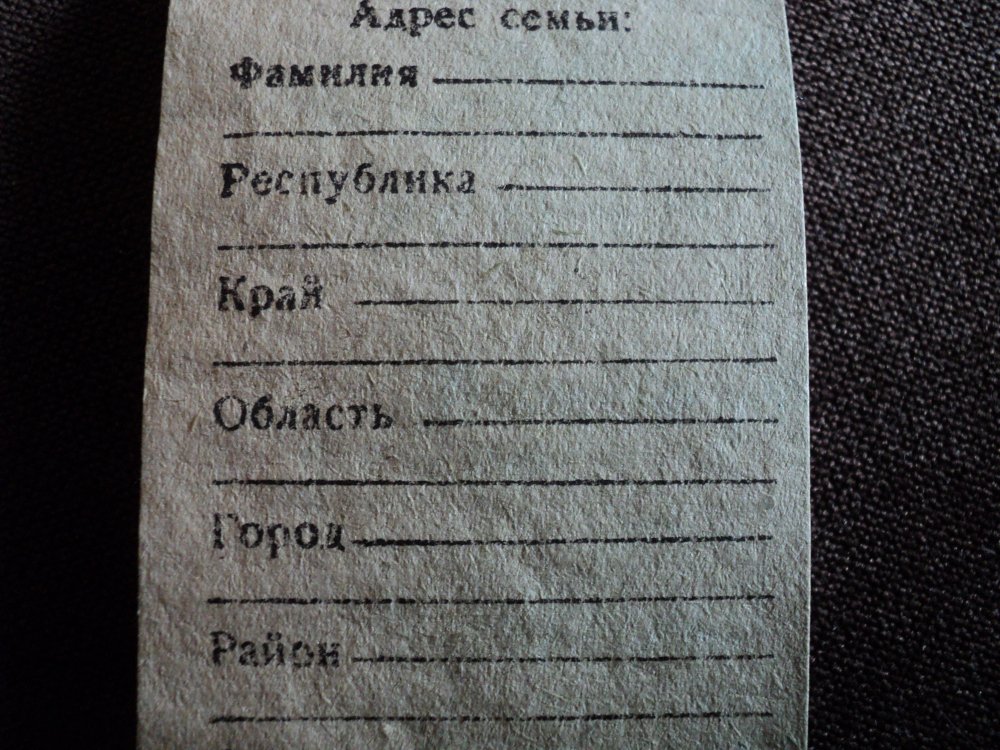 Адрес семьи:
Фамилия
Республика
Край
Область
Город
Район